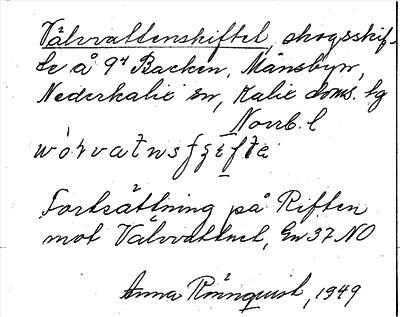 Välvvattenskiftet, skogsskif-
te å 9⁴ Backen, Månsbyn,
Nederkalix sn, Kalix doms. lg
Norrb. l
Fortsättning på Riften
mot Välvvattnet, En 37 NO
Anna Rönnquist, 1949